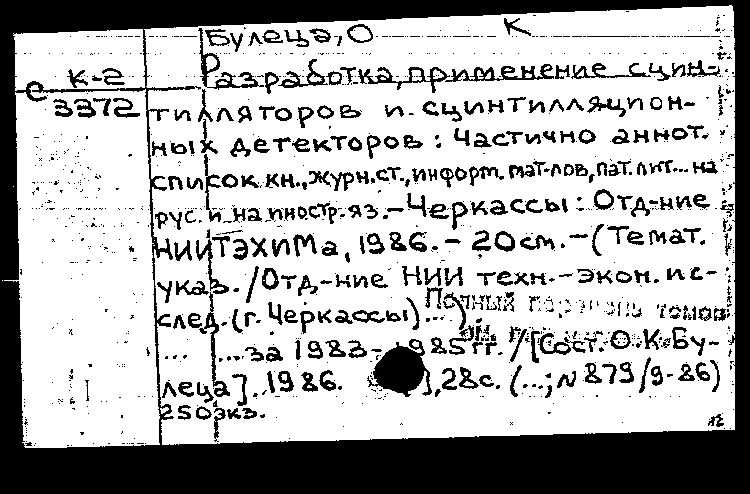 Булеца, О К
е К-2
3372
Разработка, применение сцин-
тилляторов и сцинтилляцион-
ных детекторов: Частично аннот.
список кн., журн. ст., информ. мат-лов, пат. лит... на
рус. и на иностр. яз. - Черкассы: Отд-ние
НИИТЭХИМа, 1986. - 20см. - (Темат.
указ. / Отд-ние НИИ техн.-экон. ис-
след. (г. Черкассы)...)
Полный перечень томов
см.
... ...за 1983-1985 гг. / [Сост. О.К. Бу-
леца]. 1986. ], 28с. (...; N 879/9-86)
250экз.
12